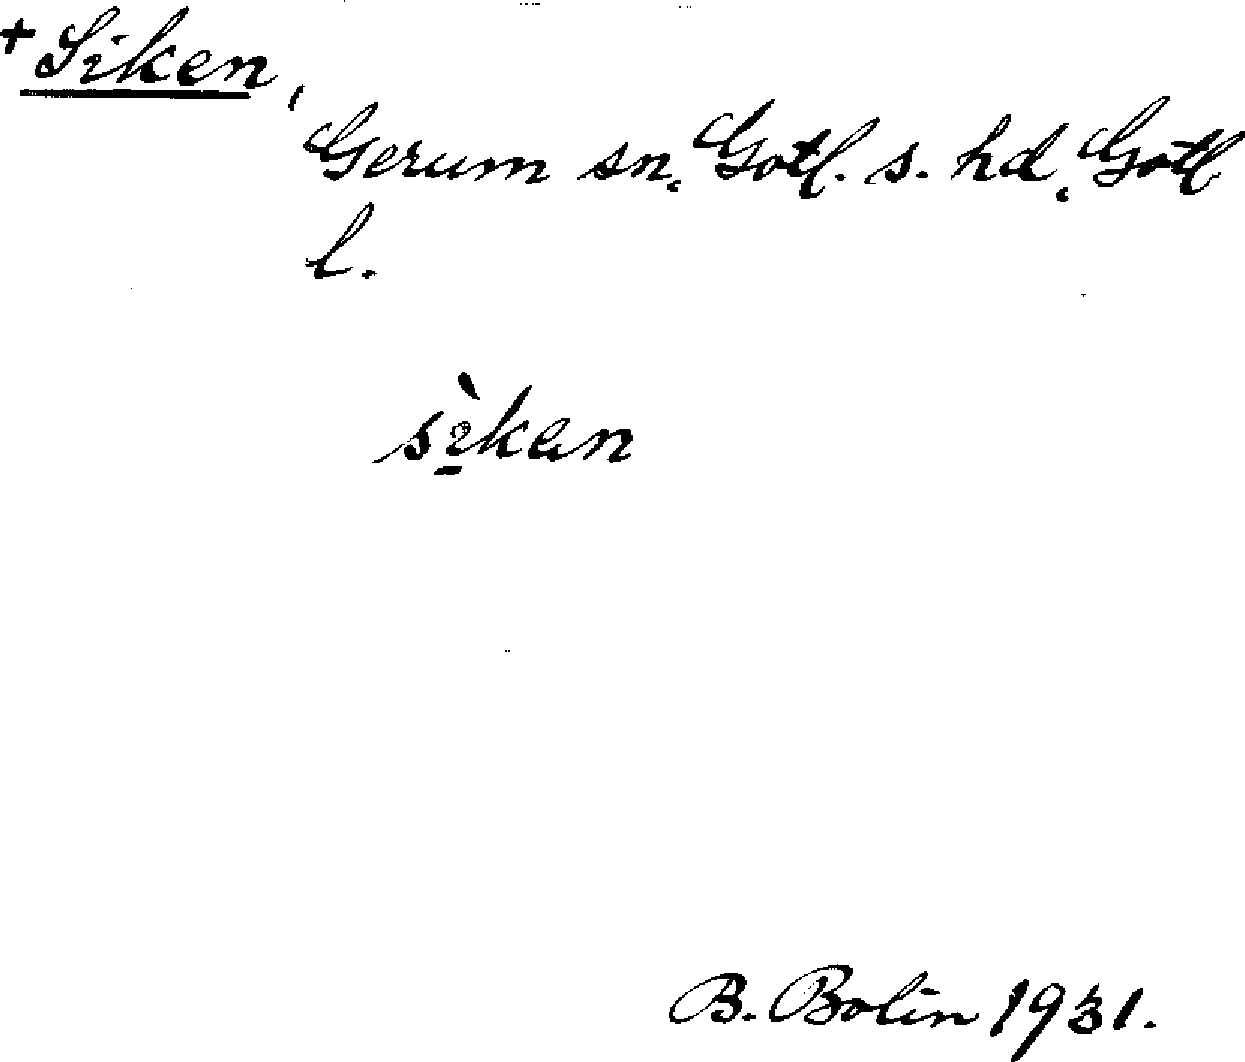 + Siken,
Gerum sn, Gotl. s. hd, Gotl
l.
sìken
B. Bolin 1931.